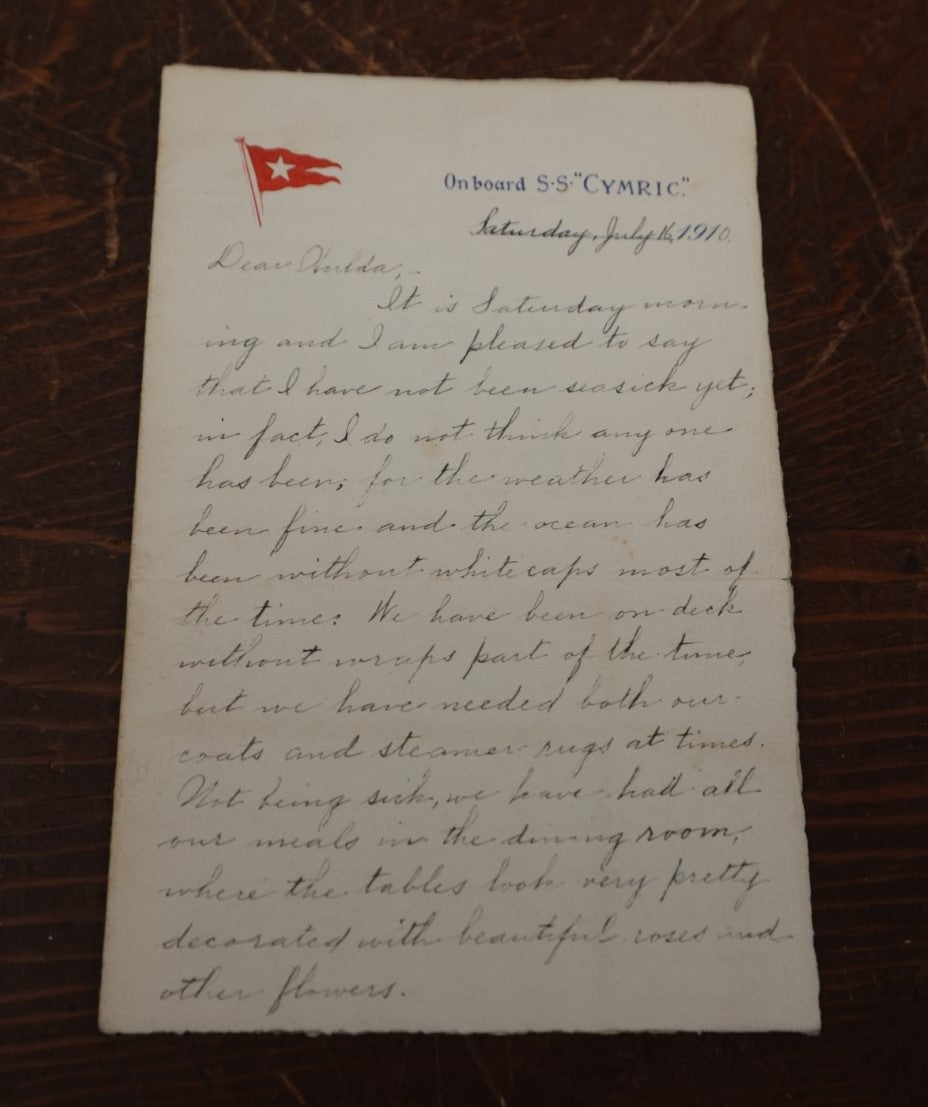 On board S.S. "CYMRIC."
Saturday, July 16, 1910.
Dear Hulda,-
It is Saturday morn-
ing and I am pleased to say
that I have not been seasick yet;
in fact, I do not think any one
has been; for the weather has
been fine and the ocean has
been without whitecaps most of
the time. We have been on deck
without wraps part of the time,
but we have needed both our
coats and steamer rugs at times.
Not being sick, we have had all
our meals in the dining room,
where the tables look very pretty
decorated with beautiful roses and
other flowers.